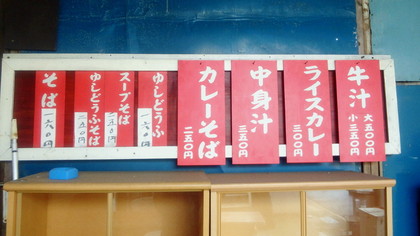 牛汁 大五〇〇円 小三五〇円
ライスカレー 三〇〇円
中身汁 三五〇円
カレーそば 二五〇円
ゆしどうふ 一六〇円
スープそば
ゆしどうふそば
そば 一六〇円